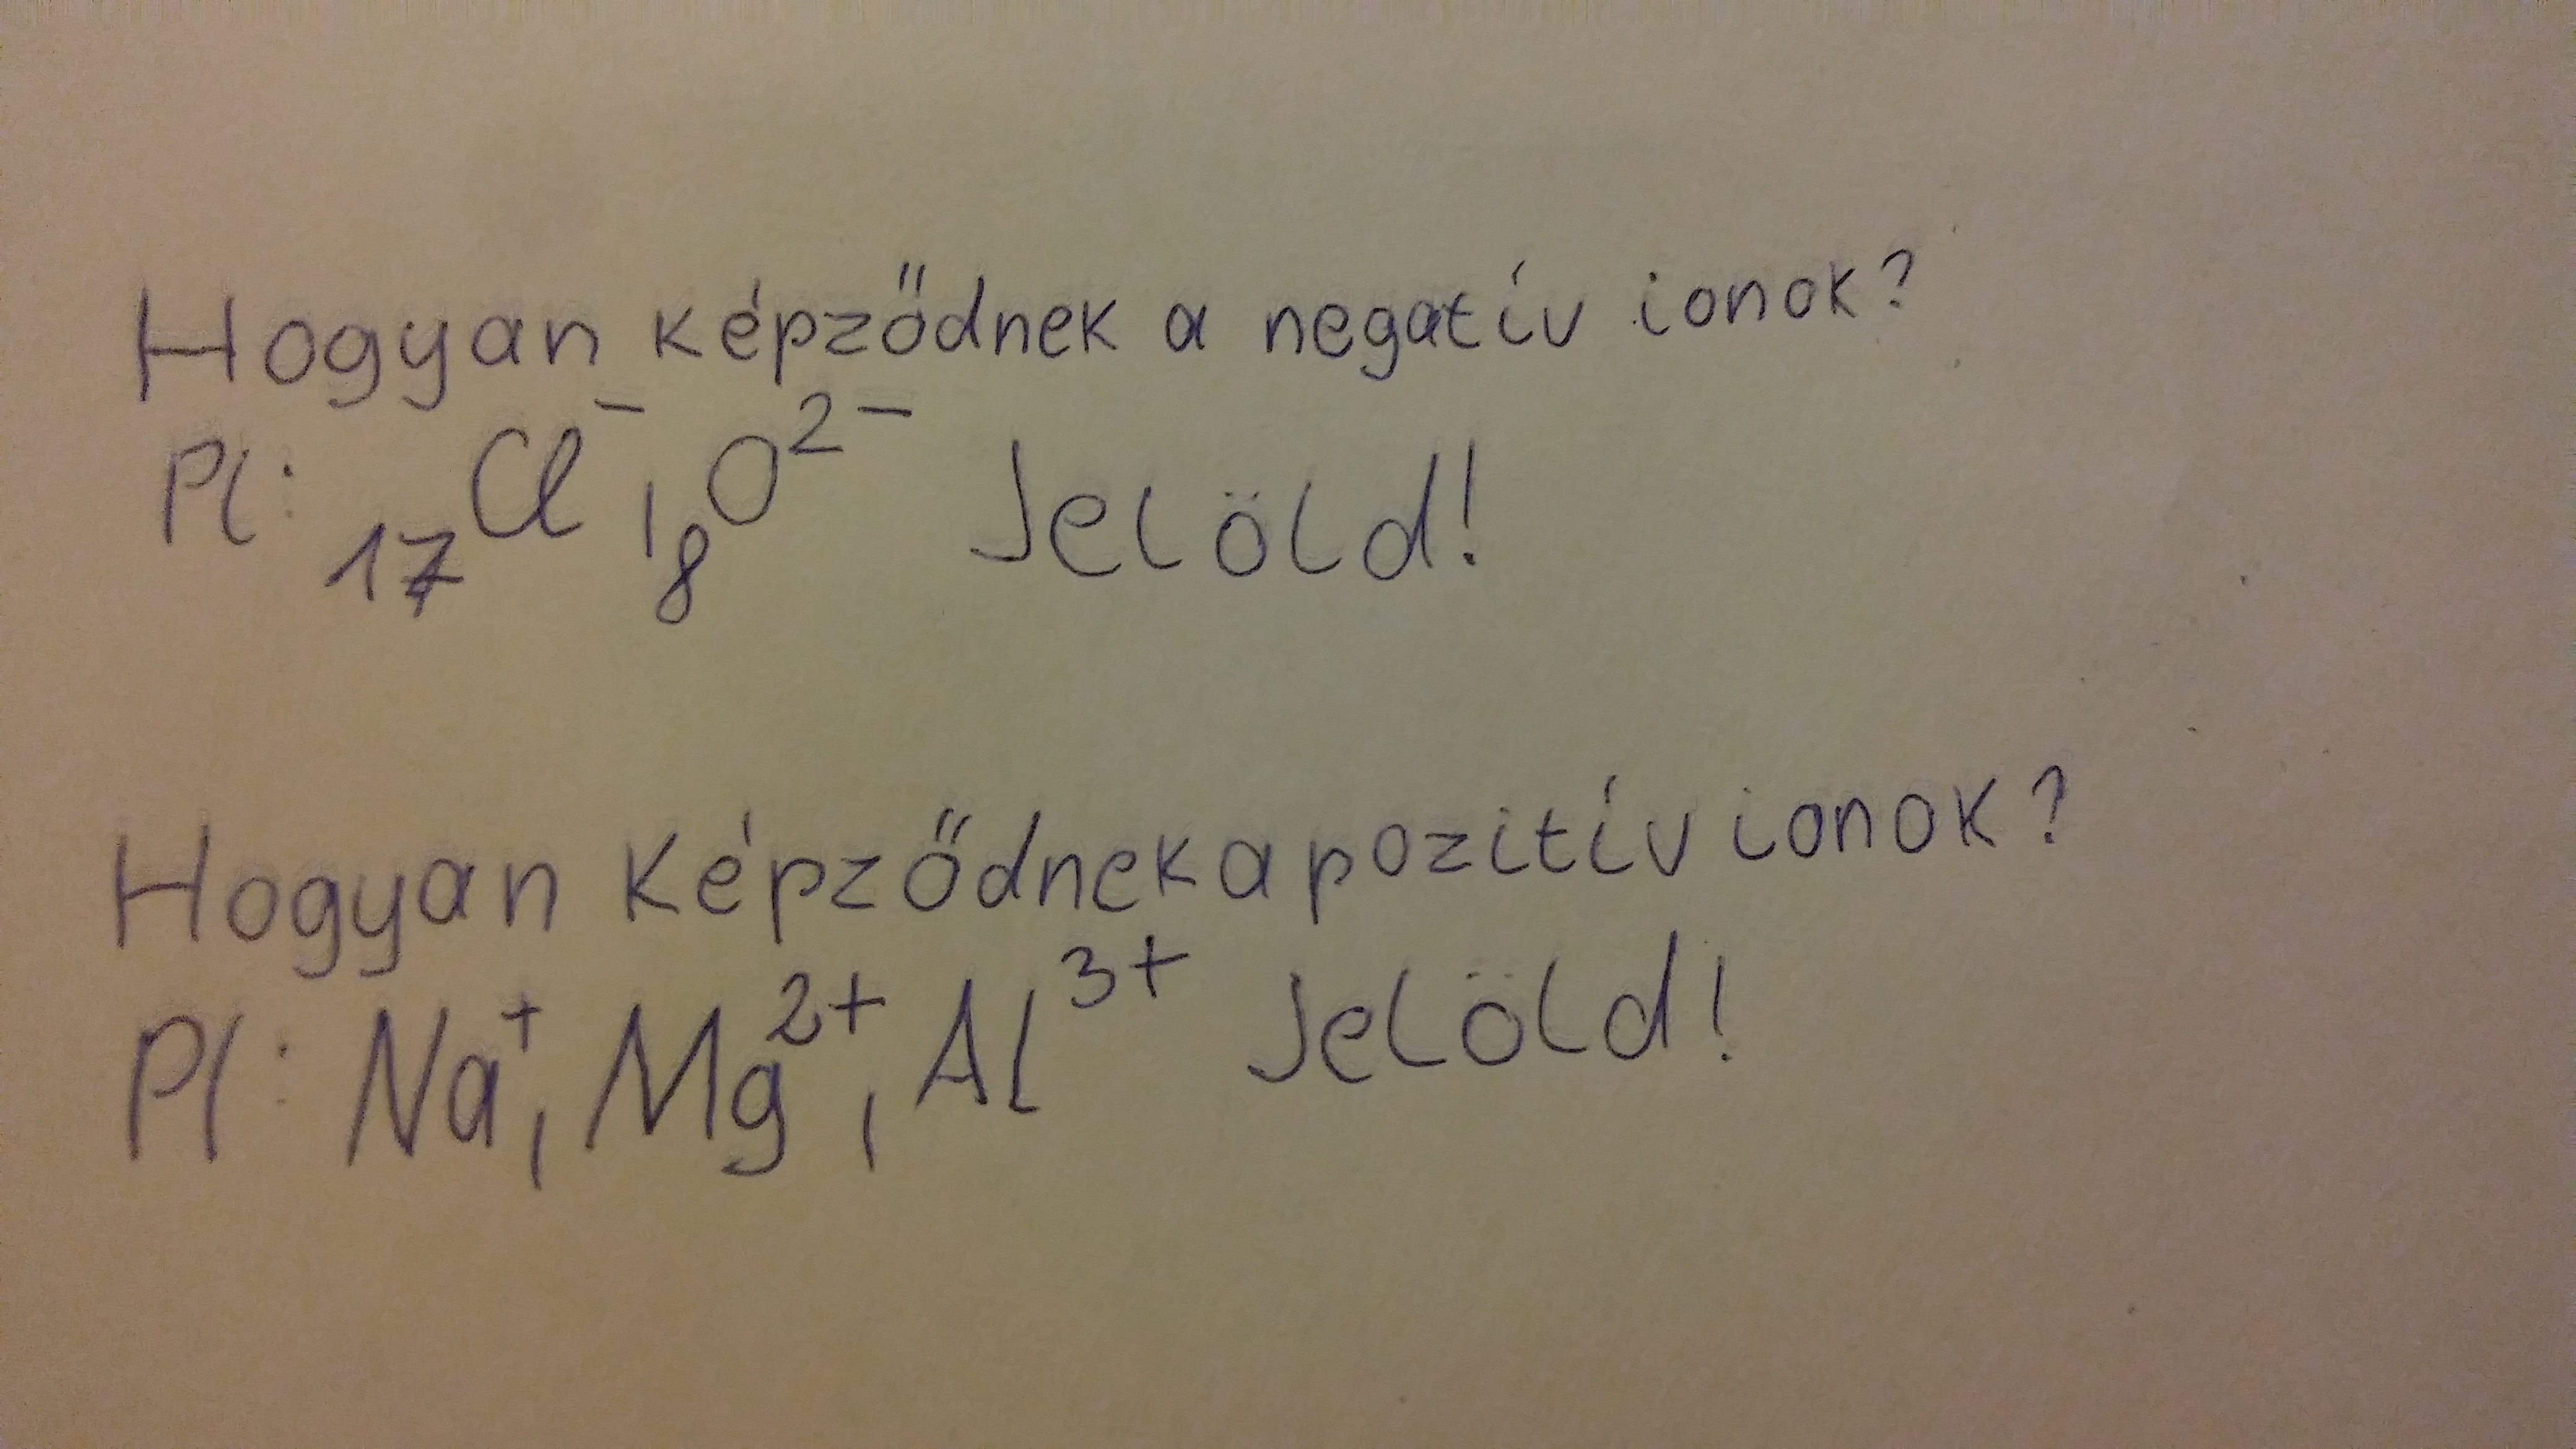 Hogyan képződnek a negatív ionok?
Pl: ₁₇Cl⁻, ₈O²⁻ Jelöld!
Hogyan képződnek a pozitív ionok?
Pl: Na⁺, Mg²⁺, Al³⁺ Jelöld!